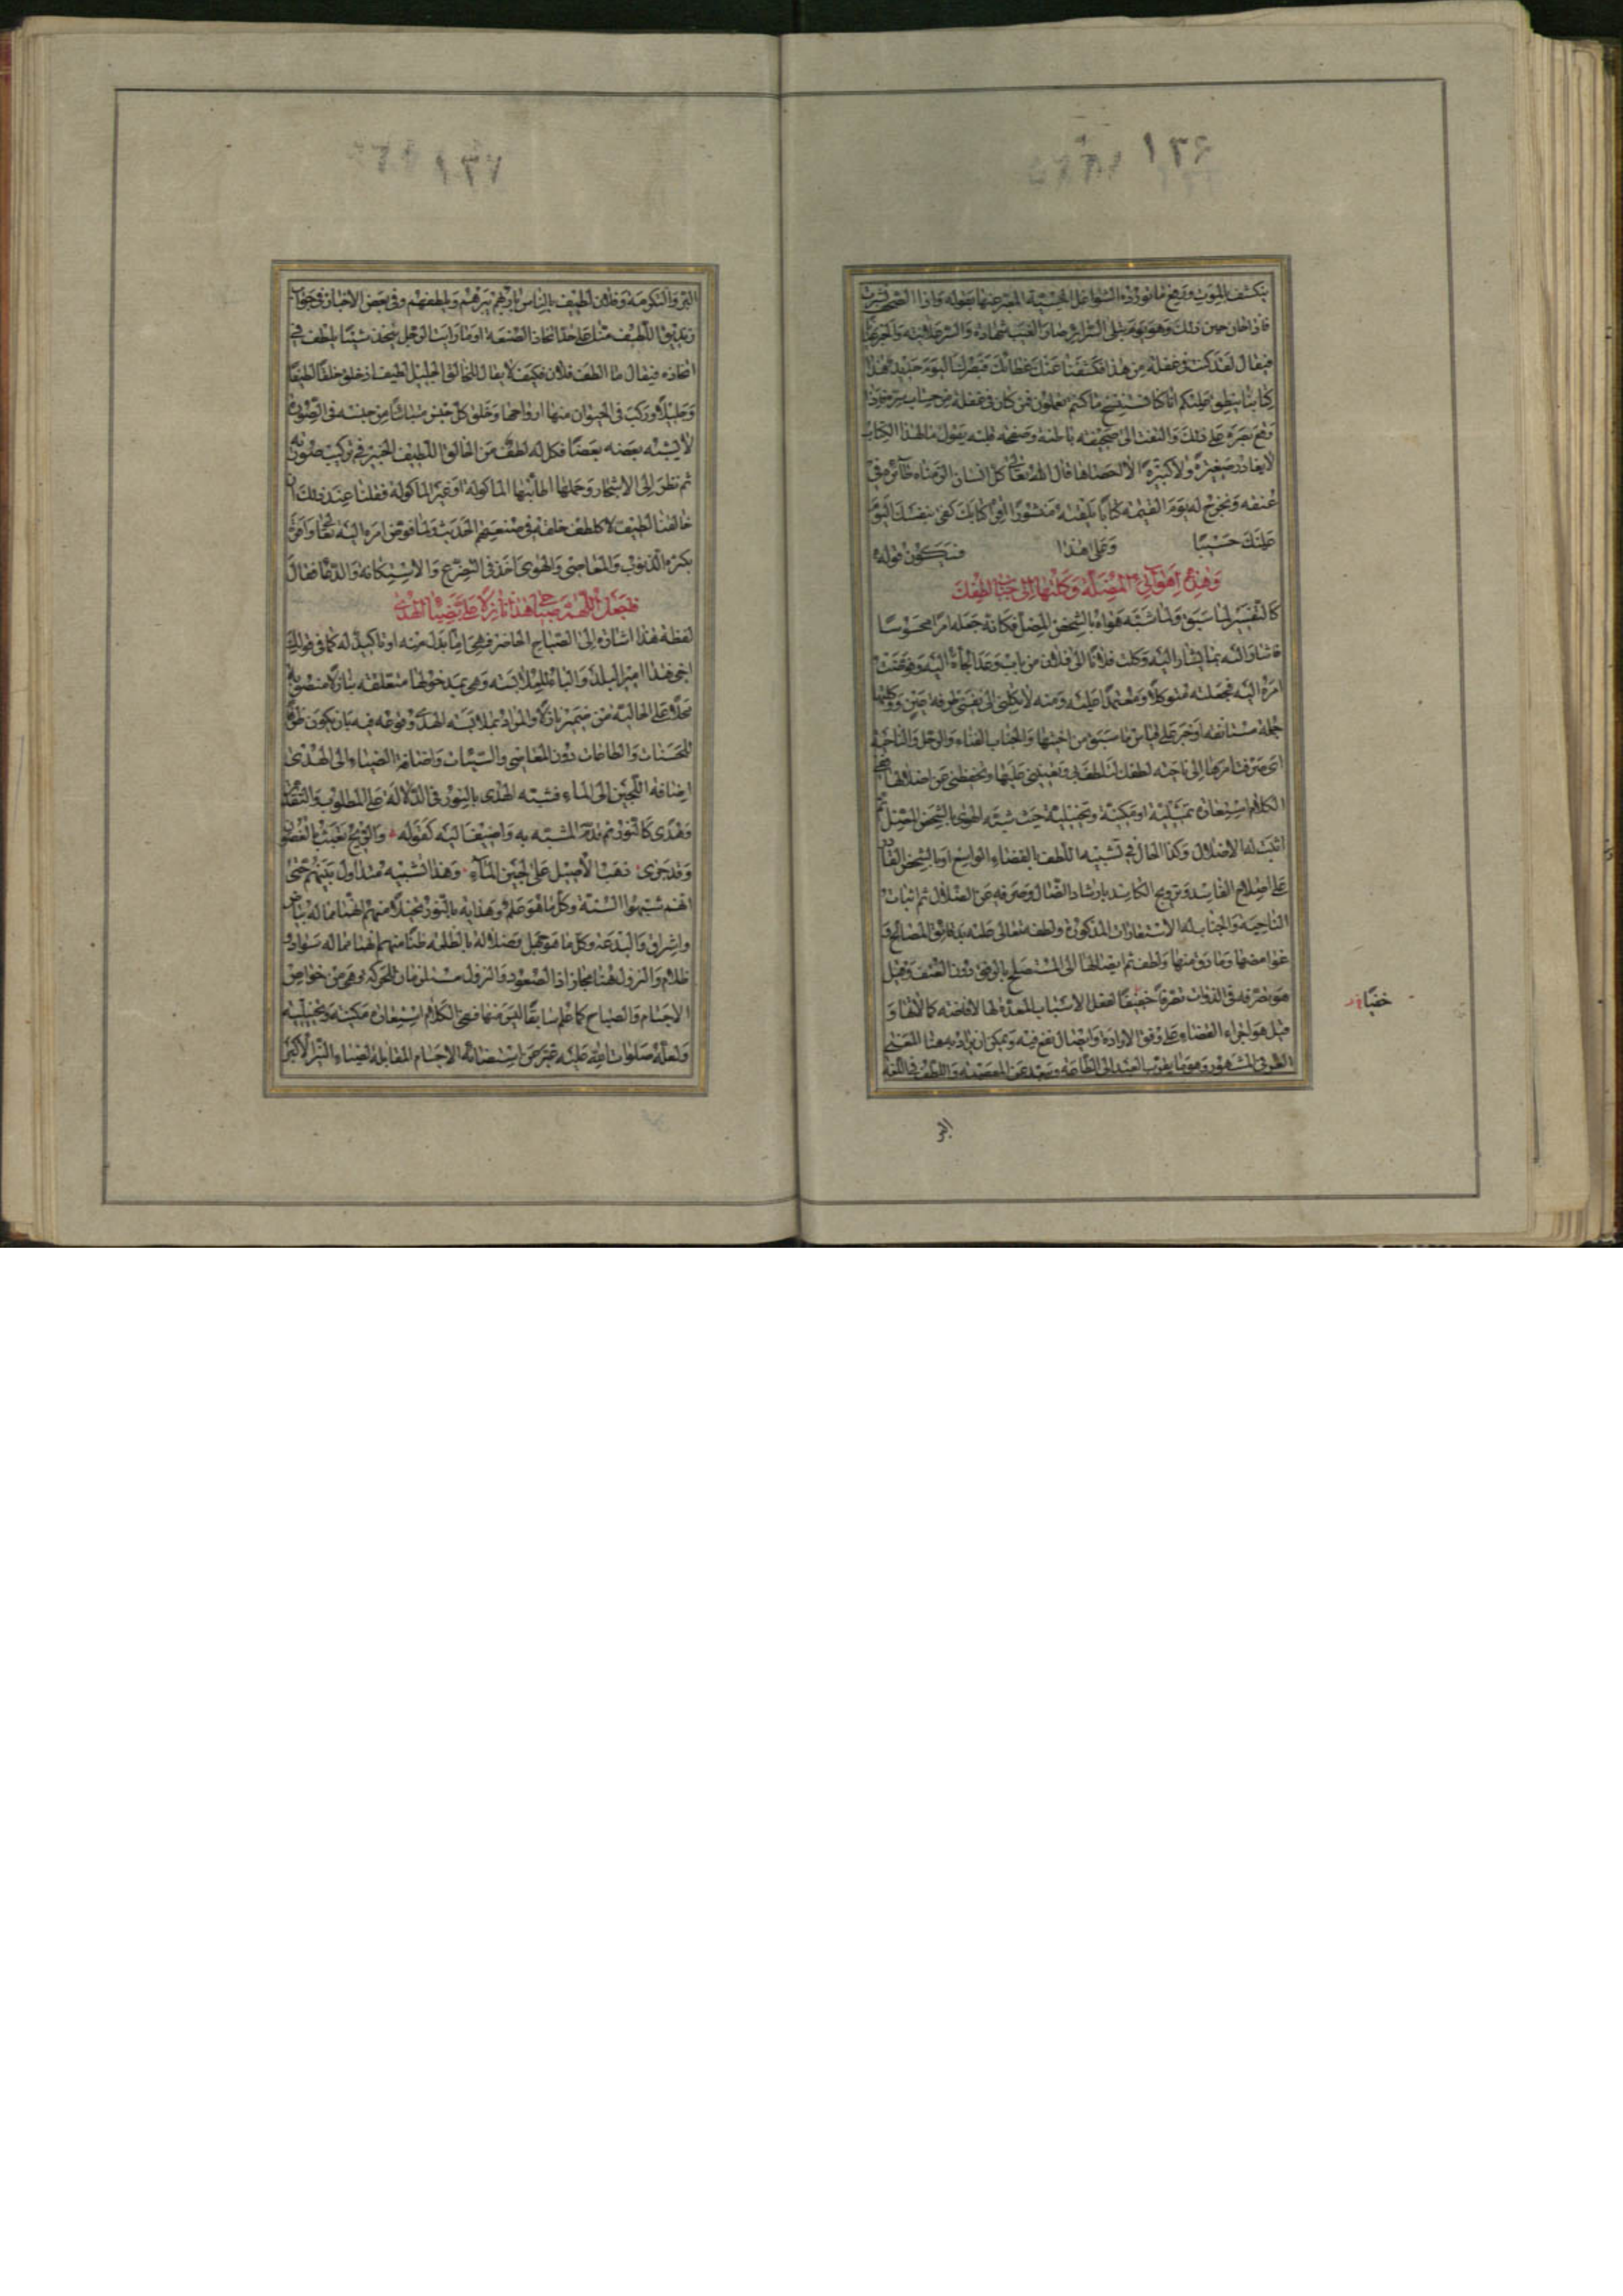 ١٣٦
ينكشف بالموت ورفع ما تورده الشواغل الحسية المعبر عنها بقوله واذا الصحف نشرت
فاذا حان حين ذلك وهو يوم تبلى السرائر صار الغيب شهادة والسر علانية والخبر عيانا
فيقال لقد كنت في غفلة من هذا فكشفنا عنك غطاءك فبصرك اليوم حديد هذا
كتابنا ينطق عليكم انا كنا نستنسخ ما كنتم تعملون فمن كان في غفلة من حساب سره
وقع بصره على ذلك والتفت الى صحيفة باطنه وصفحة قلبه يقول ما لهذا الكتاب
لا يغادر صغيرة ولا كبيرة الا احصاها قال الله تعالى كل انسان الزمناه طائره في
عنقه ونخرج له يوم القيمة كتابا يلقيه منشورا اقرأ كتابك كفى بنفسك اليوم
عليك حسيبا وعلى هذا فتكون قوله
وهذه اهوائي المضلة وكلتها الى جناب لطفك
كالتفسير لما سبق ولما شبه هواه بالشخص المضل فكانه جعله امرا محسوسا
فاشار اليه بما يشار اليه وكلت فلانا الى فلان من باب وعد الجأه اليه وفوضت
امره اليه فجعلته متوكلا ومعتمدا عليه ومنه لا تكلني الى نفسي طرفة عين ووكلتها
جملة مستانفة او خبر على قياس ما سبق من اختها والجناب الفناء والرحل والناحية
اى فوضت امرها الى ناحية لطفك لتلطف بي وتعينني عليها وتحفظني عن اضلالها ففي
الكلام استعارة تمثيلية او مكنية وتخييلية حيث شبه الهوى بالشخص المضل ثم
اثبت لها الاضلال وكذا الحال في تشبيه اللطف بالفضاء الواسع او بالشخص القادر
على اصلاح الفاسد وترويج الكاسد بارشاد الضال وصرفه عن الضلال ثم اثبات
الناحية والجناب له الاستعارات المذكورة ولطفه تعالى علمه بدقائق المصالح و
غوامضها وما دق منها ولطف ثم ايصالها الى المستصلح بالرفق دون العنف وقيل
هو تصرفه في الذوات تصرفا خفيا بفعل الاسباب المعدة لها لافاضة كمالاتها و
قيل هو اجراء القضاء على وفق الارادة وايصال نفع فيه ويمكن ان يراد به هنا المعنى
العرفي المشهور وهو ما يقرب العبد الى الطاعة ويبعد عن المعصية واللطف في اللغة
خفيا
البر
١٣٧
البر والتكرمة وفلان لطيف بالناس بارهم يبرهم ويلطفهم وفي بعض الاخبار في جواب
زنديق اللطيف منا على حد اتخاذ الصنعة اوما رايت الرجل يتخذ شيئا يلطف في
اتخاذه فيقال ما الطف فلان فكيف لا يقال للخالق الجليل لطيف اذ خلق خلقا لطيفا
وجليلا وركب في الحيوان منها ارواحها وخلق كل جنس متباينا من جنسه في الصورة
لا يشبه بعضه بعضا فكل له لطف من الخالق اللطيف الخبير في تركيب صورته
ثم نظر الى الاشجار وحملها اطائبها الماكولة وغير الماكولة فقلنا عند ذلك ان
خالقنا لطيف لا كلطف خلقه في صنعتهم الحديث ولما فوض امره اليه تعالى واقر
بكثرة الذنوب والمعاصي والهوى اخذ في التضرع والاستكانة والدعاء فقال
فاجعل اللهم صباحي هذا نازلا علي بضياء الهدى
لفظة هذا اشارة الى الصباح الحاضر فهي اما بدل منه او تاكيد له كما في قولك
اخي هذا امير البلد والباء للملابسة وهي بمدخولها متعلقة بنازلا منصوبة
محلا على الحالية من ضمير نازلا والمراد بملابسة الهدى وقوعه فيه بان يكون ظرفا
للحسنات والطاعات دون المعاصي والسيئات واضافة الضياء الى الهدى
اضافة اللجين الى الماء فشبه الهدى بالنور في الدلالة على المطلوب والتقدير
وهدى كالنور ثم قدم المشبه به واضيف اليه كقوله والريح تعبث بالغصون
وقد جرى ذهب الاصيل على لجين الماء وهذا تشبيه متداول بينهم حتى
انهم شبهوا السنة وكل ما هو علم وهداية بالنور تخيلا منهم انها مما له بياض
واشراق والبدعة وكل ما هو جهل وضلالة بالظلمة ظنا منهم انها مما له سواد و
ظلام والنزول ههنا مجاز اذ الصعود والنزول مستلزمان للحركة وهي من خواص
الاجسام والصباح كما علم سابقا ليس منها ففي الكلام استعارة مكنية وتخييلية
ولعله صلوات الله عليه عبر عن استضاءة الاجسام المقابلة لضياء النير الاكبر